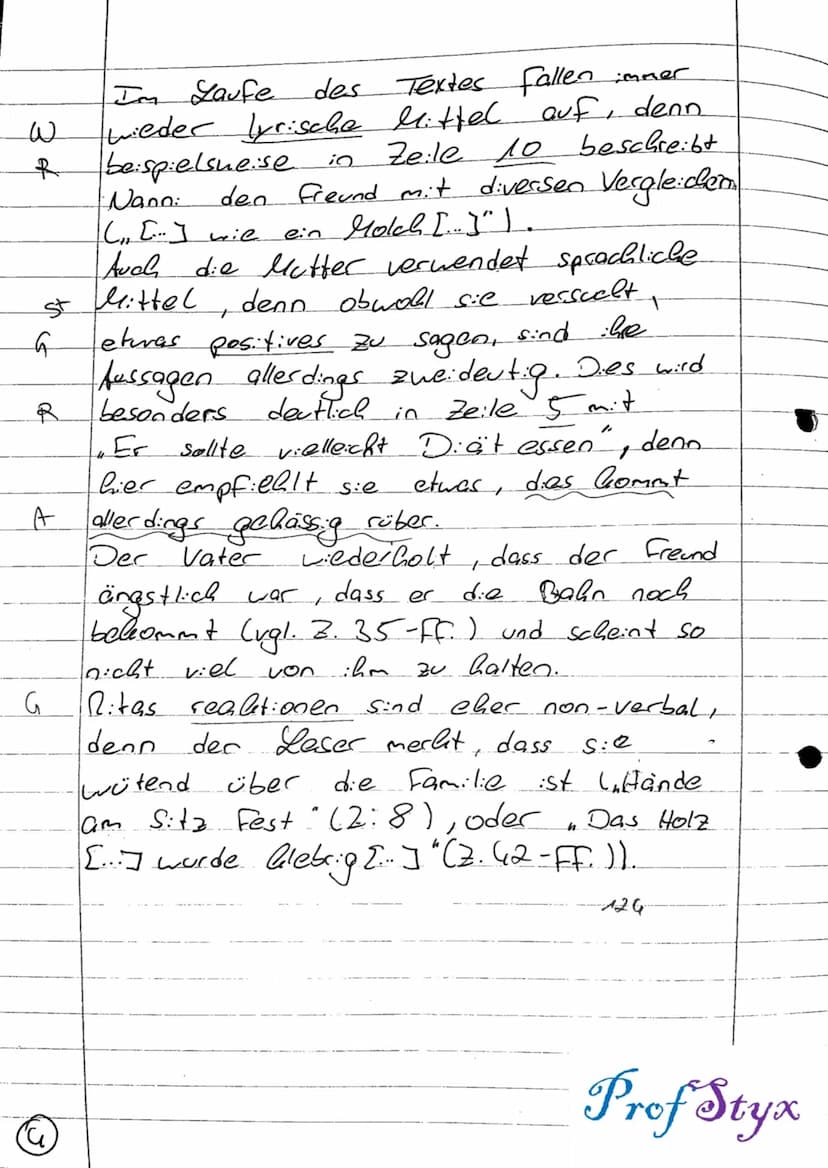 Im Laufe des Textes fallen immer
W wieder lyrische Mittel auf, denn
R beispielsweise in Zeile 10 beschreibt
Nanni den Freund mit diversen Vergleichen
(„[..] wie ein Molch [..]").
Auch die Mutter verwendet sprachliche
St Mittel, denn obwohl sie versucht,
G etwas positives zu sagen, sind ihre
Aussagen allerdings zweideutig. Dies wird
R besonders deutlich in Zeile 5 mit
„Er sollte vielleicht Diät essen", denn
hier empfiehlt sie etwas, das kommt
A allerdings gehässig rüber.
Der Vater wiederholt, dass der Freund
ängstlich war, dass er die Bahn noch
bekommt (vgl. Z. 35-ff.) und scheint so
nicht viel von ihm zu halten.
G Ritas reaktionen sind eher non-verbal,
denn der Leser merkt, dass sie
wütend über die Familie ist („Hände
am Sitz fest" (Z: 8), oder „Das Holz
[...] wurde klebrig [..]" (Z. 42-ff.)).
124
G
Prof Styx